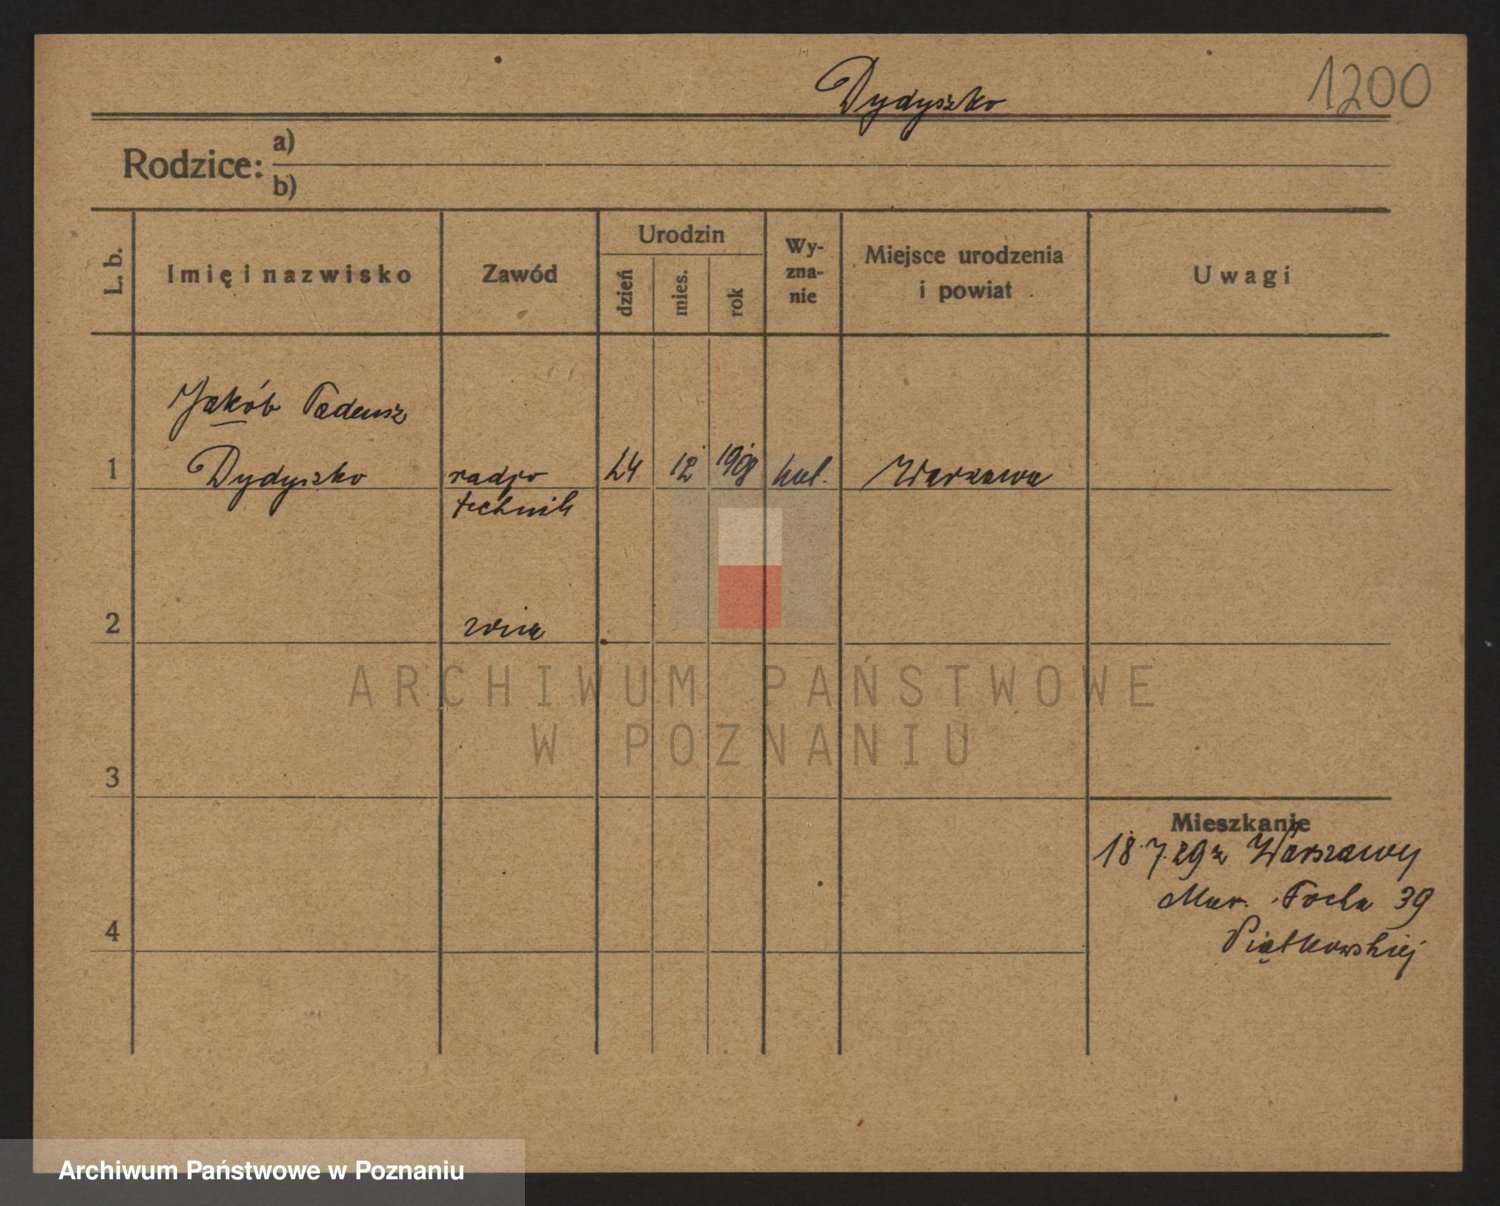 Dydyszko 1200
Rodzice: a)
b)
L. b. Imię i nazwisko Zawód Urodzin dzień mies. rok Wy-zna-nie Miejsce urodzenia i powiat Uwagi
Jakób Tadeusz
1 Dydyszko radjo 24 12 1908 kat. Warszawa
technik
2
ARCHIWUM PAŃSTWOWE
W POZNANIU
3
Mieszkanie
18.7.29 z Warszawy
Mar. Focha 39
4 Piątkowskiej
Archiwum Państwowe w Poznaniu